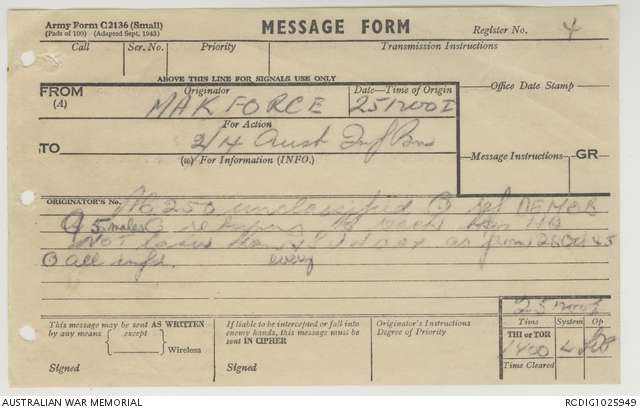 Army Form C2136 (Small)
(Pads of 100) (Adapted Sept. 1943)
MESSAGE FORM
Register No. 4
Call
Ser. No.
Priority
Transmission Instructions
ABOVE THIS LINE FOR SIGNALS USE ONLY
FROM
(A)
Originator
MAKFORCE
Date-Time of Origin
251200I
Office Date Stamp
For Action
TO
2/4 Aust Inf Bn
(W) For Information (INFO.)
Message Instructions
GR
ORIGINATOR'S No.
unclassified
5 males
HQ
NOT later than
all infd.
every
This message may be sent AS WRITTEN
by any means except
Wireless
Signed
If liable to be intercepted or fall into
enemy hands, this message must be
sent IN CIPHER
Signed
Originator's Instructions
Degree of Priority
Time
System
Op
THI or TOR
1400
Time Cleared
AUSTRALIAN WAR MEMORIAL
RCDIG1025949